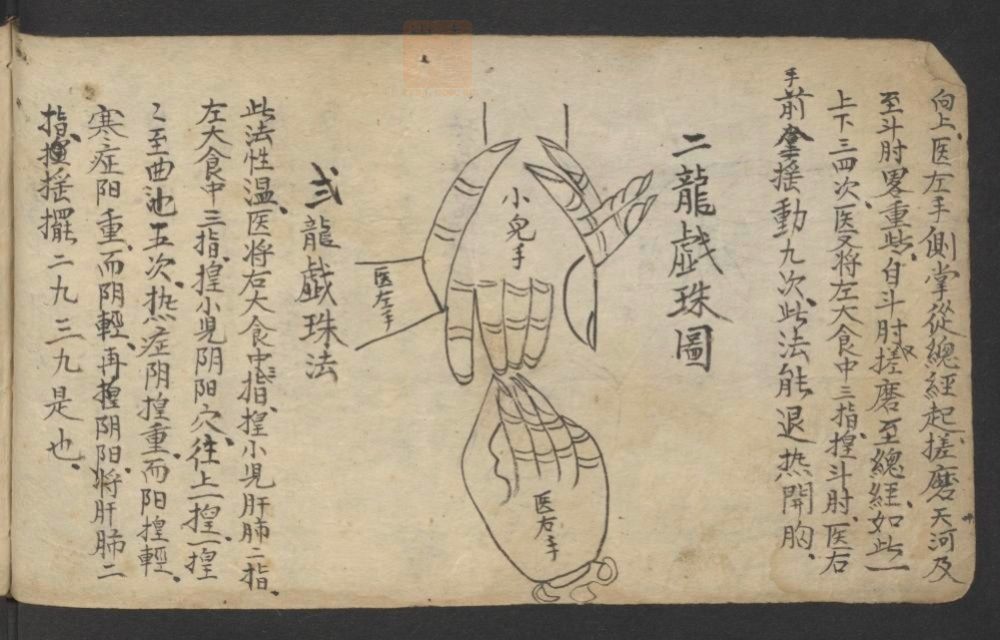 向上、医左手側掌從總經起、搓磨天河及
至斗肘畧重些、自斗肘搓磨至總經、如此一
上下三四次、医又将左大食中三指、揘斗肘、医右
手前拿摇動九次、此法能退热開胸、
二龍戯珠圖
小兒手
医左手
医右手
弍龍戯珠法
此法性温、医将右大食中指、揘小児肝肺二指、
左大食中三指、揘小児阴阳穴、往上一揘一揘
〻至曲池五次、热症阴揘重、而阳揘輕、
寒症阳重、而阴輕、再揘阴阳、将肝肺二
指、摇擺二九三九是也、